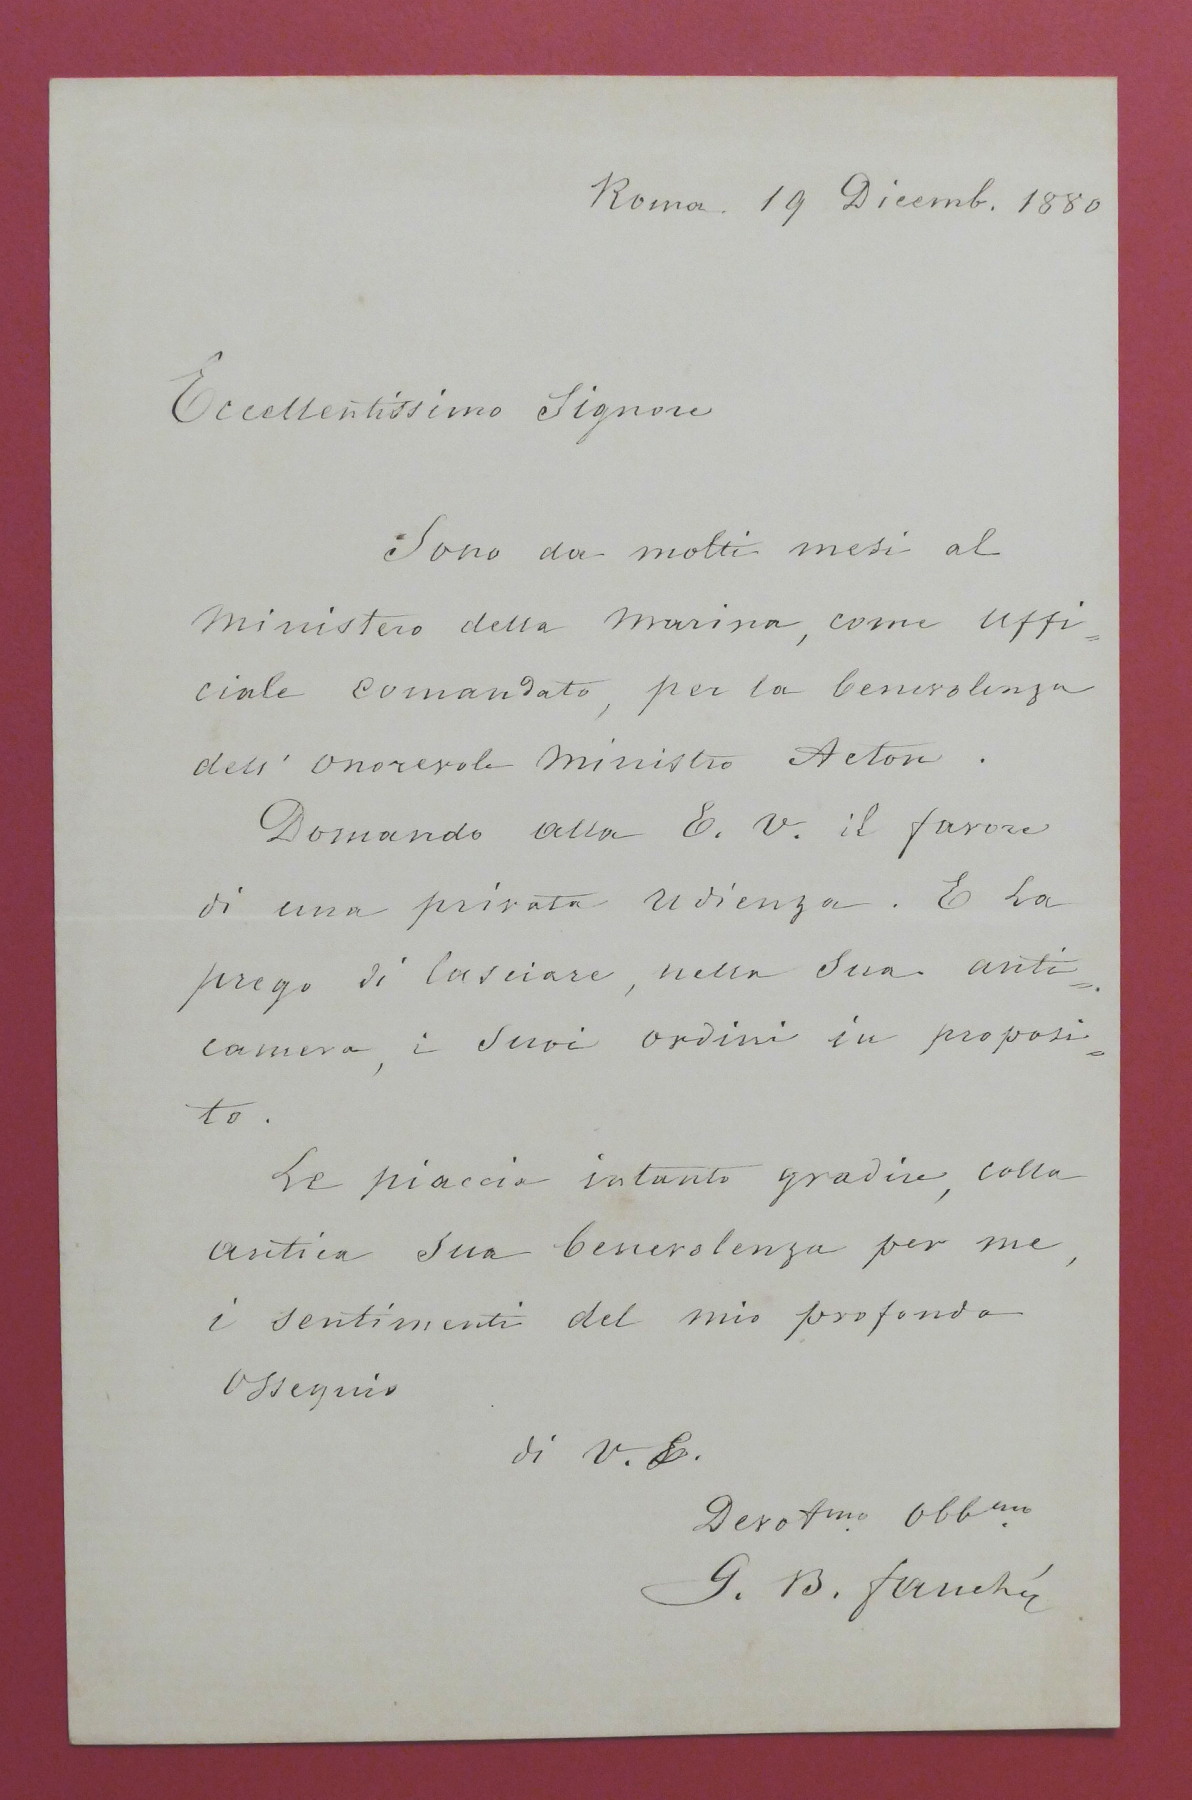 Roma. 19 Dicemb. 1880
Eccellentissimo Signore
Sono da molti mesi al
Ministero della Marina, come Uffi=
ciale comandato, per la benevolenza
dell' Onorevole Ministro Acton.
Domando alla E. V. il favore
di una privata udienza. E La
prego di lasciare, nella Sua anti=
camera, i Suoi ordini in proposi=
to.
Le piaccia intanto gradire, colla
antica Sua benevolenza per me,
i sentimenti del mio profondo
Ossequio
di V. E.
Devotmo. Obbmo.
G. B.